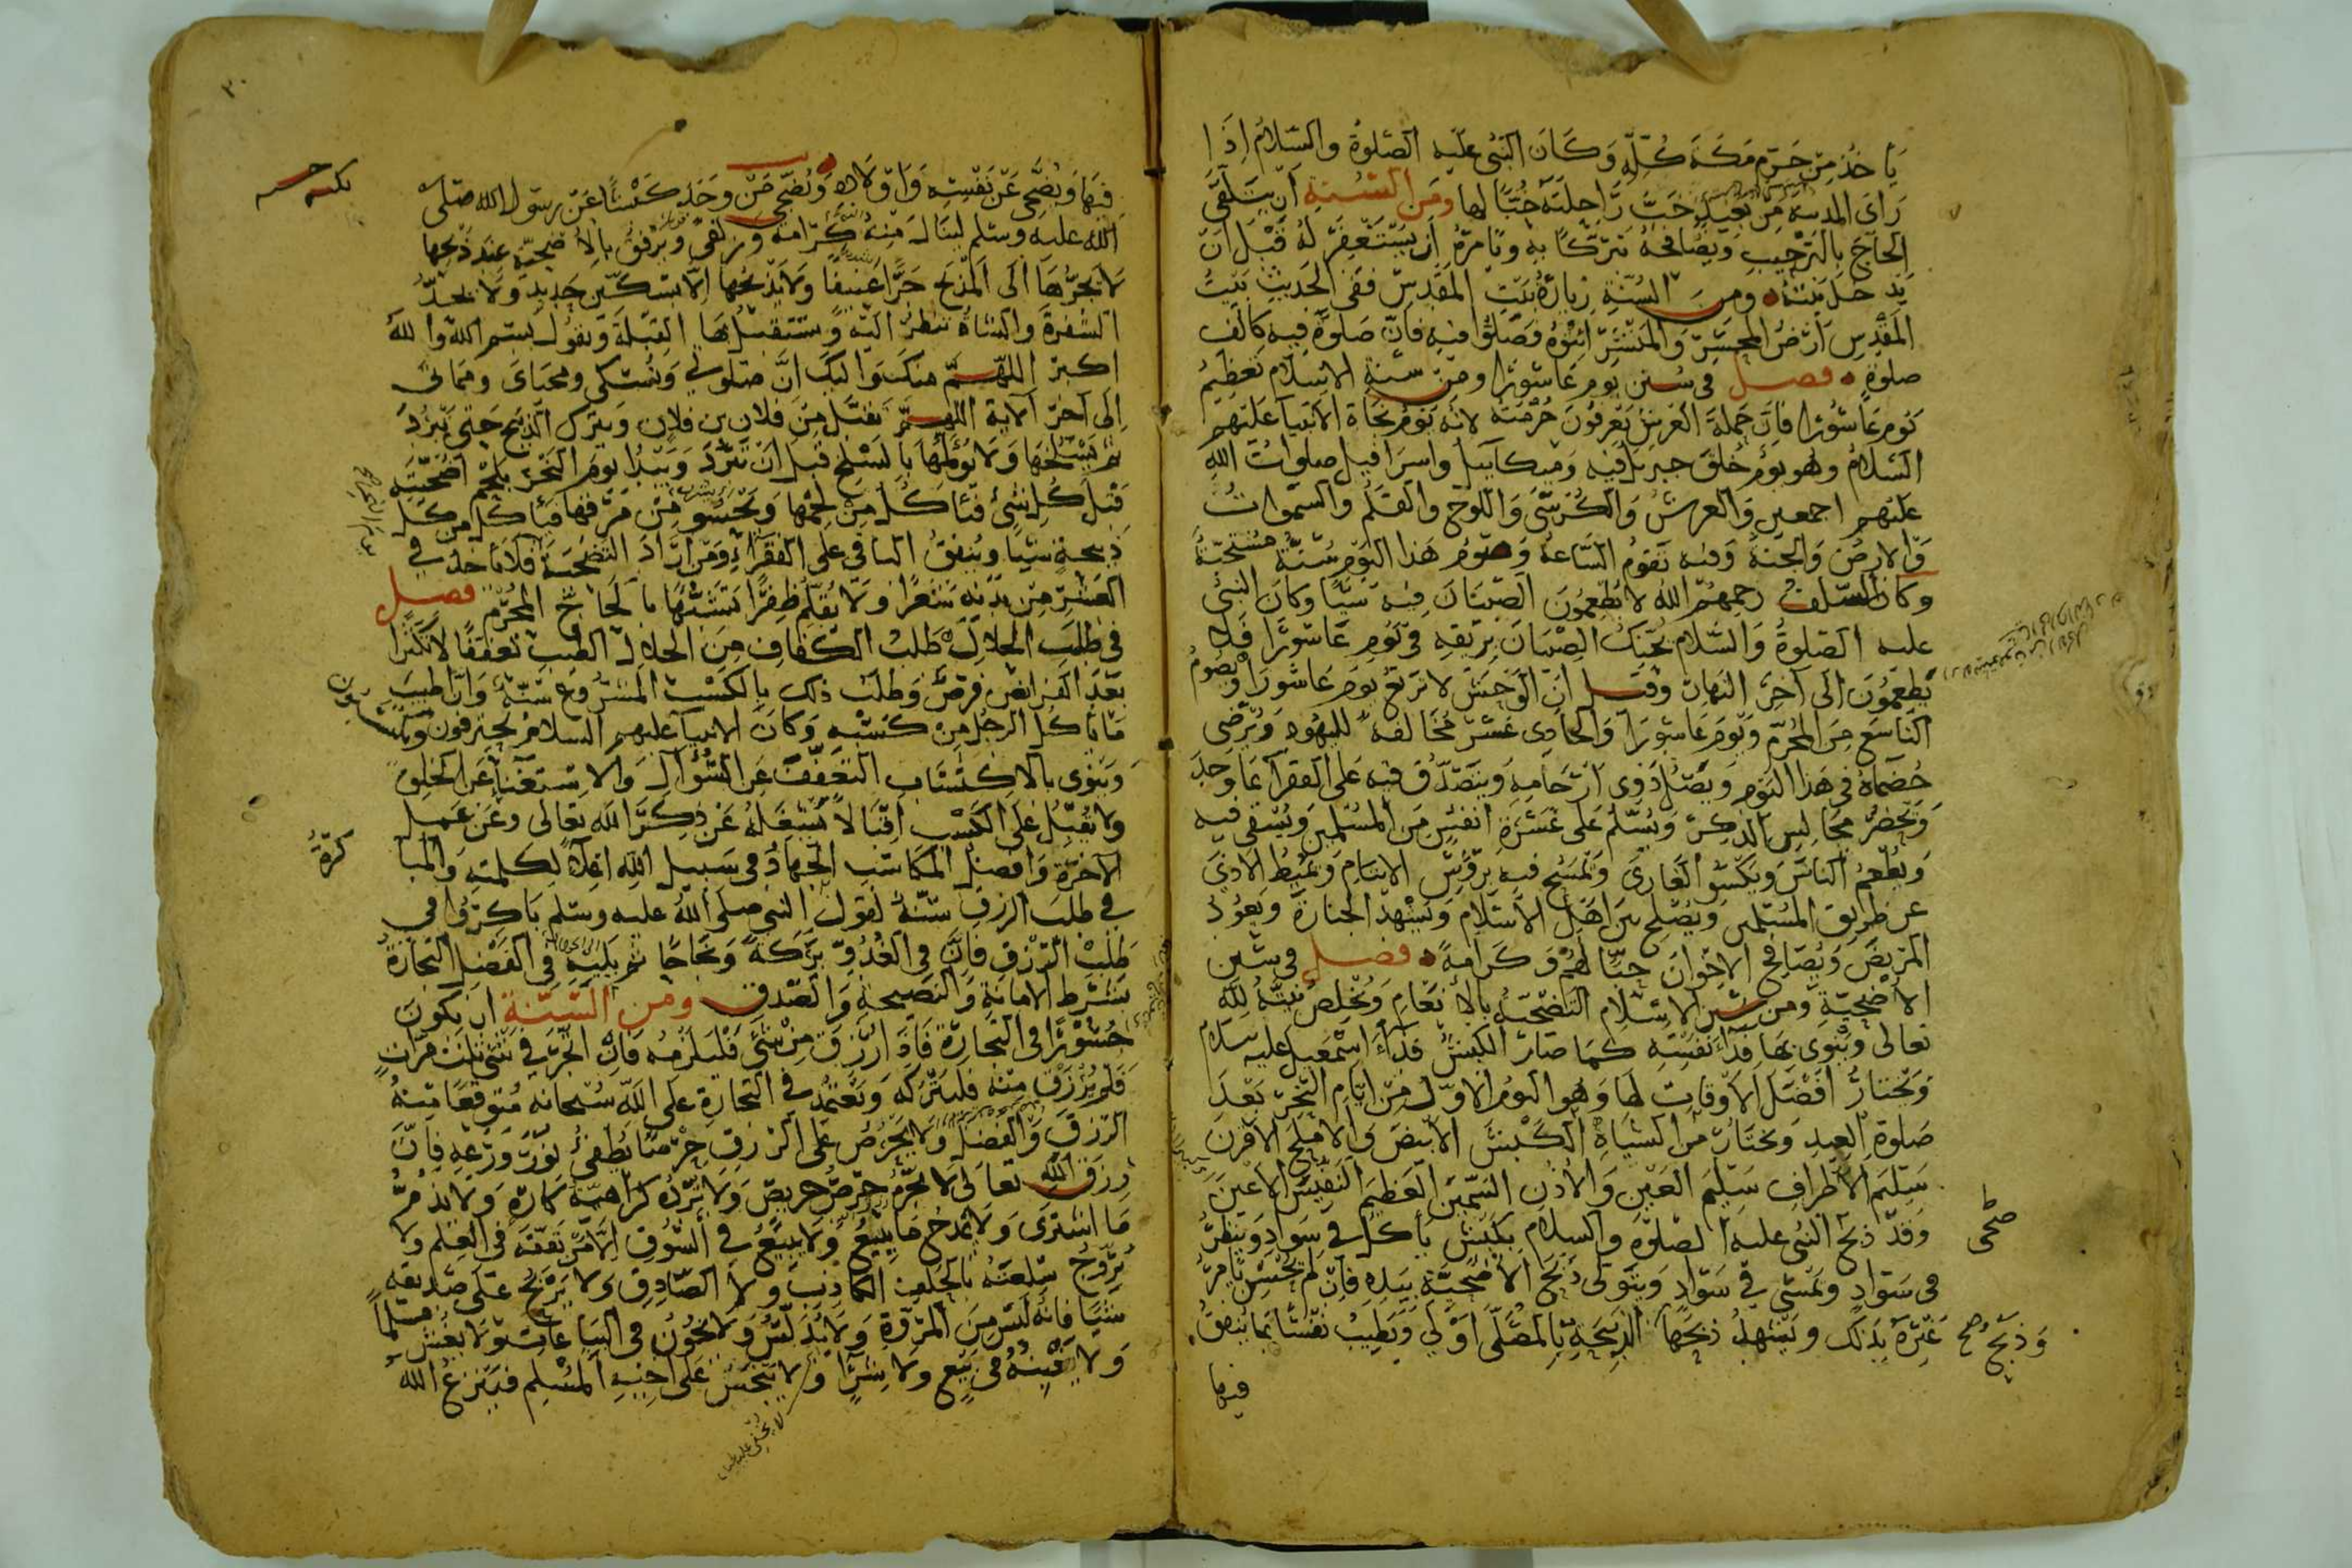 يَأخُذَ مِنْ حَرَمِ مَكَّةَ كُلِّهِ وَكَانَ النَّبِىُّ عَلَيْهِ الصَّلٰوةُ وَالسَّلَامُ اِذَا
رَاَى المدينةَ مِنْ بَعِيدٍ حَثَّ رَاحِلَتَهُ حُبًّا لها ومن السُّنَّةِ اَنْ يَتَلَقَّى
الحَاجَّ بِالتَّرْحِيبِ وَيُصَافِحَهُ تَبَرُّكًا بِهِ وَيَأمُرَهُ اَنْ يَسْتَغْفِرَ لَهُ قَبْلَ اَنْ
يَدْخُلَ بَيْتَهُ ومن السُنَّةِ زِيَارَةُ بَيْتِ المَقْدِسِ فَفِى الحَدِيثِ بَيْتُ
المَقْدِسِ اَرْضُ المَحْشَرِ وَالمَنْشَرِ ائْتُوهُ فَصَلُّوا فِيهِ فَاِنَّ صَلٰوةً فِيهِ كَاَلْفِ
صلوة فصل فى سُنَنِ يومِ عَاشُورَا ومن سُنَّةِ الاسلام تَعظِيمُ
يَوْمِ عَاشُورَا فَاِنَّ حَمَلَةَ العَرْشِ يَعْرِفُونَ حُرْمَتَهُ لانَّهُ يَوْمُ نَجَاةِ الانبيآ عَلَيْهِم
السَّلَامُ وهو يَوْمٌ خُلِقَ جبريل فيه وَمِيكائيل واسرافيل صلوات اللهِ
عليهم اجمعين وَالعرشُ وَالكُرْسِىُّ وَاللَّوْحُ والقَلَمُ والسَّمٰوَاتُ
وَالارضُ وَالجَنَّةُ وفيه تَقومُ السَّاعَةُ وَصَوْمُ هَذَا اليَوْمِ سُنَّةٌ مُسْتَحَبَّةٌ
وكان السَّلَفُ رحمهُمُ اللهُ لا يُطْعِمُونَ الصِّبْيَانَ فِيهِ شَيْئًا وكَانَ النَّبِىُّ
عليه الصلوةُ والسَّلام يُحَنِّكُ الصِّبْيَانَ بِرِيقِهِ فى يَوْمِ عَاشُورَا فَلا
يَطْعَمُونَ الى آخِرِ النَّهَارِ وقيل اَنَّ الوَحْشَ لا تَرْتَعُ يَومَ عَاشُورَا وَيَصُومُ
التَّاسِعَ مِنَ المُحَرَّمِ وَيَوْمَ عَاشُورَا وَالحَادِى عَشَرَ مُخَالَفَةً لليَهُودِ وَيُرْضِى
خُصَمَاءَهُ فى هَذَا اليَوْمِ وَيَصِلُ ذَوِى اَرْحَامِهِ وَيَتَصَدَّقُ فِيهِ عَلَى الفقرآ بِمَا وَجَدَ
وَيَحْضُرُ مَجَالِسَ الذِّكْرِ وَيُسَلِّمُ عَلَى عَشَرَةِ اَنْفُسٍ مِنَ المُسْلِمِينَ وَيُسْقِى فِيهِ
وَيُطْعِمُ النَّاسَ وَيَكْسُو العَارِىَ وَيَمْسَحُ فِيهِ بِرُؤُسِ الايتامِ وَيُمِيطُ الاَذَى
عن طَرِيقِ المُسْلِمِينَ وَيُصْلِحُ بَيْنَ اَهْلِ الاِسْلَامِ وَيَشْهَدُ الجنَازَةَ وَيَعُودُ
المَرِيضَ وَيُصَافِحُ الاِخْوَانَ حُبًّا لَهُمْ وَكَرَامَةً فصل فى سُنَنِ
الاُضْحِيَّةِ ومن سنن الاِسْلَامِ التَّضْحِيَةُ بِالاَنْعَامِ وَيُخْلِصُ نِيَّتَهُ لِلّٰهِ
تَعَالى وَيَنْوِى بِهَا فِدَآءَ نَفْسِهِ كَمَا صَارَ الكَبْشُ فِدَآءَ اِسْمٰعِيل عليه سلام
وَيَخْتَارُ اَفْضَلَ الاَوْقَاتِ لَهَا وَهُوَ اليومُ الاوَّل مِنْ اَيَّامِ النَّحْرِ بَعْدَ
صَلوةِ العِيدِ وَيَخْتَارُ مِنَ الشِّيَاهِ الكَبْشَ الاَبْيَضَ وَالاَمْلَحَ الاَقْرَنَ
سَلِيمَ الاَطْرَافِ سَلِيمَ العَيْنِ وَالاُذُنِ السَّمِينَ العَظِيمَ النَّفِيسَ الاَعْيَنَ
وَقَدْ ذَبَحَ النَّبِىُّ عليه الصَّلوةُ والسَّلامُ بِكَبْشٍ يَأكُلُ فى سَوَادٍ وَيَنْظُرُ
فى سَوَادٍ وَيَمْشِى فى سَوَادٍ وَيَتَوَلَّى ذَبْحَ الاُضْحِيَّةِ بِيَدِهِ فَاِنْ لَمْ يُحْسِنْ يَأمُرُ
غَيْرَهُ بِذَلِكَ وَيَشْهَدُ ذَبْحَهَا الذَّبِيحَةِ بِالمُصَلَّى اَوْلَى وَيَطِيبُ نَفْسًا بِمَا يُنْفِقُ
وَذَبْحُ صح
ضحى
فيها
٣٠
فيها وَيُضَحِّى عَنْ نَفْسِهِ وَاَوْلَادِهِ وَيُضَحِّى مَنْ وَجَدَ كَبْشًا عَنْ رسُولِ الله صَلّى
اللهُ عليه وسلم لينال مِنْهُ كَرَامَةً وَزُلْفَى وَيَرْفُقُ بِالاُضْحِيَّةِ عِنْدَ ذَبْحِهَا
لَا يَجُرُّهَا اِلَى المَذْبَحِ جَرًّا عَنِيفًا وَلَا يَذْبَحُهَا اِلَّا بِسِكِّينٍ حَدِيدٍ وَلا يُحِدُّ
الشَّفْرَةَ وَالشَّاةُ تَنْظُرُ اليْهِ وَيَسْتَقْبِلُ بِهَا القِبْلَةَ وَيَقُولُ بِسْمِ اللهِ وَاللهُ
اكبَرُ اللّٰهُمَّ مِنْكَ وَاليْكَ اِنَّ صَلٰوتِى وَنُسُكِى وَمَحْيَاىَ وَمَمَاتِى
اِلَى آخِرِ الآيَةِ اللهمَّ تَقَبَّلْ مِنْ فلانِ بن فلانٍ وَيَتْرُكُ الذَّبِيحَ حَتَّى يَبْرُدَ
ثم يَسْلَخُهَا وَلَا يُؤْلِمُهَا بِالسَّلْخِ قَبْلَ اَنْ تَبْرُدَ وَيَبْدَأُ يَومَ النَّحْرِ بِلَحْمِ اُضْحِيَّتِهِ
قَبْلَ كُلِّ شَىْءٍ فَيَأكُلُ مِنْ لَحْمِهَا وَيَحْسُو مِنْ مَرَقِهَا فَيَأكُلُ مِنْ كُلِّ
ذَبِيحَةٍ شَيْئًا وَيُنْفِقُ البَاقِى عَلَى الفُقَرَآءِ وَمَنْ اَرَادَ التَّضْحِيَةَ فَلَا يَأخُذْ فى
العَشْرِ مِنْ بَدَنِهِ شَعْرًا وَلَا يُقَلِّمْ ظُفْرًا تَشَبُّهًا بِالحَاجِّ المُحْرِمِ فصل
فى طلبِ الحلَالِ طَلَبُ الكَفَافِ مِنَ الحلال الطَّيِّبِ تَعَفُّفًا لا تَكَثُّرًا
بَعْدَ الفَرَائِضِ فَرْضٌ وَطَلَبُ ذَلِكَ بِالكَسْبِ المَشْرُوعِ سُنَّةٌ وَاِنَّ اَطْيَبَ
مَا يَأكُلُ الرَّجُلُ مِنْ كَسْبِهِ وَكَانَ الانبيآ عليهم السلامُ يَحْتَرِفُونَ وَيكتسبون
وَيَنْوِى بِالاِكْتِسَابِ التَّعَفُّفَ عَنِ السُّؤَال وَالاسْتِغْنَآءَ عَنِ الخَلْقِ
وَلا يُقْبِلُ عَلَى الكَسْبِ اِقْبَالاً يَشْغَلُهُ عَنْ ذِكْرِ اللهِ تَعَالى وَعَنْ عَمَلِ
الاخِرَةِ وَاَفْضَلُ المَكَاسِبِ الجِهَادُ فى سَبِيلِ اللهِ اِعْلاءً لِكَلِمَتِهِ وَالمُبَا
كرة
فى طَلَبِ الرِّزْقِ سُنَّةٌ لقول النبى صلى اللهُ عليه وسلم بَاكِرُوا فى
طَلَبِ الرِّزْقِ فَاِنَّ فى الغُدُوِّ بَرَكَةً وَنَجَاحًا ثم يَلِيهِ فى الفَضْلِ التِّجَارَةُ
بِشَرْطِ الاَمَانَةِ وَالنَّصِيحَةِ وَالصِّدْقِ ومن السُّنَّةِ ان يَكُونَ
جَسُورًا فى التِّجَارَةِ فَاِذَا رُزِقَ مِنْ شَىْءٍ فَلْيَلْزَمْهُ فَاِنِ اتَّجَرَ فى شَىْءٍ ثَلٰثَ مَرَّاتٍ
فَلَمْ يُرْزَقْ مِنْهُ فَليَتْرُكْهُ وَيَعْتَمِدُ فى التِّجَارَةِ عَلَى اللهِ سُبْحَانَهُ مُتَوَقِّعًا مِنْهُ
الرِّزْقَ وَالفَضْلَ وَلا يَحْرِصُ عَلَى الرّزقِ حِرْصًا يُطْفِئُ نُورَ وَرَعِهِ فَاِنَّ
رِزْقَ اللهِ تَعَالَى لا يَجُرُّهُ حِرْصُ حَرِيصٍ وَلَا يَرُدُّهُ كَرَاهِيَةُ كَارِهٍ وَلَا يَذُمُّ
مَا اشْتَرَى وَلَا يَمْدَحُ مَا يَبِيعُ وَلَا يَبِيعُ فى السُّوقِ اِلَّا مَنْ تَفَقَّهَ فى العِلْمِ وَلَا
يُرَوِّجُ سِلْعَتَهُ بِالحَلْفِ الكاذِبِ وَلَا الصَّادِقِ وَلا يَرْبَحُ عَلَى صَدِيقِهِ
شَيْئًا فَاِنَّهُ لَيْسَ مِنَ المُرُوَّةِ وَلَا يُدَلِّسُ وَلَا يَخُونُ فى البِيَاعَاتِ وَلَا يَغُشُّ مسلما
وَلَا يَغْبِنُهُ فى بَيْعٍ ولا شِرًا وَلَا يَبْخَسُ عَلَى اَخِيهِ المُسْلِمِ فَيَنْزِعُ اللهُ